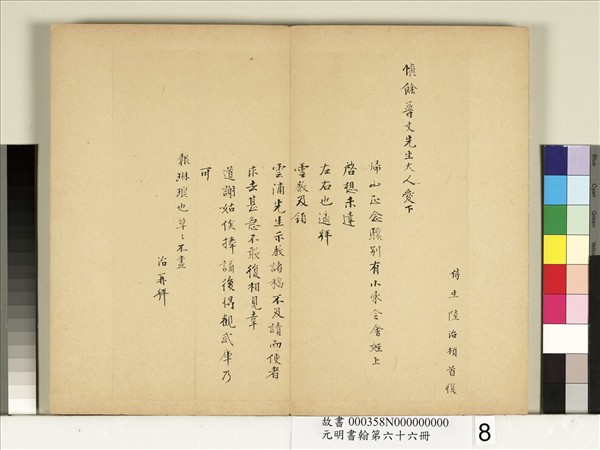 侍生陸治頓首復
慎餘尊丈先生大人愛下
歸山正念驟別有小柬令舍姪上
啓想未達
左右也適拜
雲教及領
雲浦先生示教諸稿不及讀而使者
求去甚急不敢復相見幸
道謝姑俟捧誦後得觀武庫乃
可
報琳琅也草々不盡
治再拜
故書 000358N000000000
元明書翰第六十六冊
8
Blue
Cyan
Green
Yellow